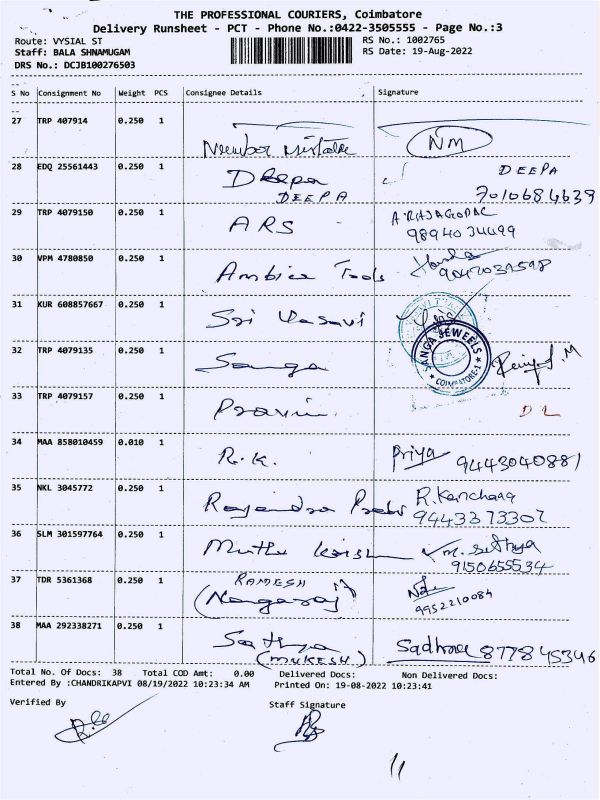 THE PROFESSIONAL COURIERS, Coimbatore
Delivery Runsheet - PCT - Phone No.:0422-3505555 - Page No.:3
Route: VYSIAL ST
RS No.: 1002765
Staff: BALA SHNAMUGAM
RS Date: 19-Aug-2022
DRS No.: DCJB100276503
S No Consignment No Weight PCS Consignee Details Signature
27 TRP 407914 0.250 1
Number Mistake NM
28 EDQ 25561443 0.250 1 Deepa DEEPA
DEEPA 7010684639
29 TRP 4079150 0.250 1 ARS A.RAJAGOPAL
9894034499
30 VPM 4780850 0.250 1
Ambica Tools
31 KUR 608857667 0.250 1
Sri Vasavi
SANGA JEWEELS
COIMBATORE-1
32 TRP 4079135 0.250 1
Sanga
33 TRP 4079157 0.250 1
Pravin DL
34 MAA 858010459 0.010 1
R.K. Priya 9443040881
35 NKL 3045772 0.250 1
Rajendra R.Kanchana
9443373302
36 SLM 301597764 0.250 1
Muthu M. Sathya
9150655534
37 TDR 5361368 0.250 1 RAMESH
(Nagaraj) 9952210084
38 MAA 292338271 0.250 1
Sathya Sadhna 877845346
(MUKESH)
Total No. Of Docs: 38 Total COD Amt: 0.00 Delivered Docs: Non Delivered Docs:
Entered By :CHANDRIKAPVI 08/19/2022 10:23:34 AM Printed On: 19-08-2022 10:23:41
Verified By Staff Signature